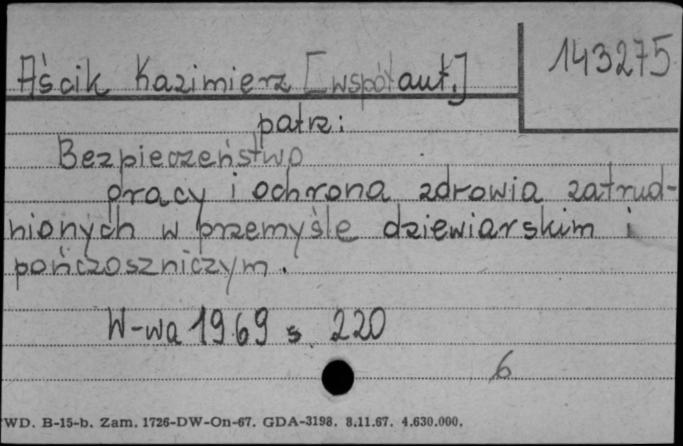 143275
Aścik Kazimierz [współaut.]
patrz:
Bezpieczeństwo
pracy i ochrona zdrowia zatrud-
nionych w przemyśle dziewiarskim i
pończoszniczym.
W-wa 1969 s. 220
6
WD. B-15-b. Zam. 1726-DW-On-67. GDA-3198. 8.11.67. 4.630.000.